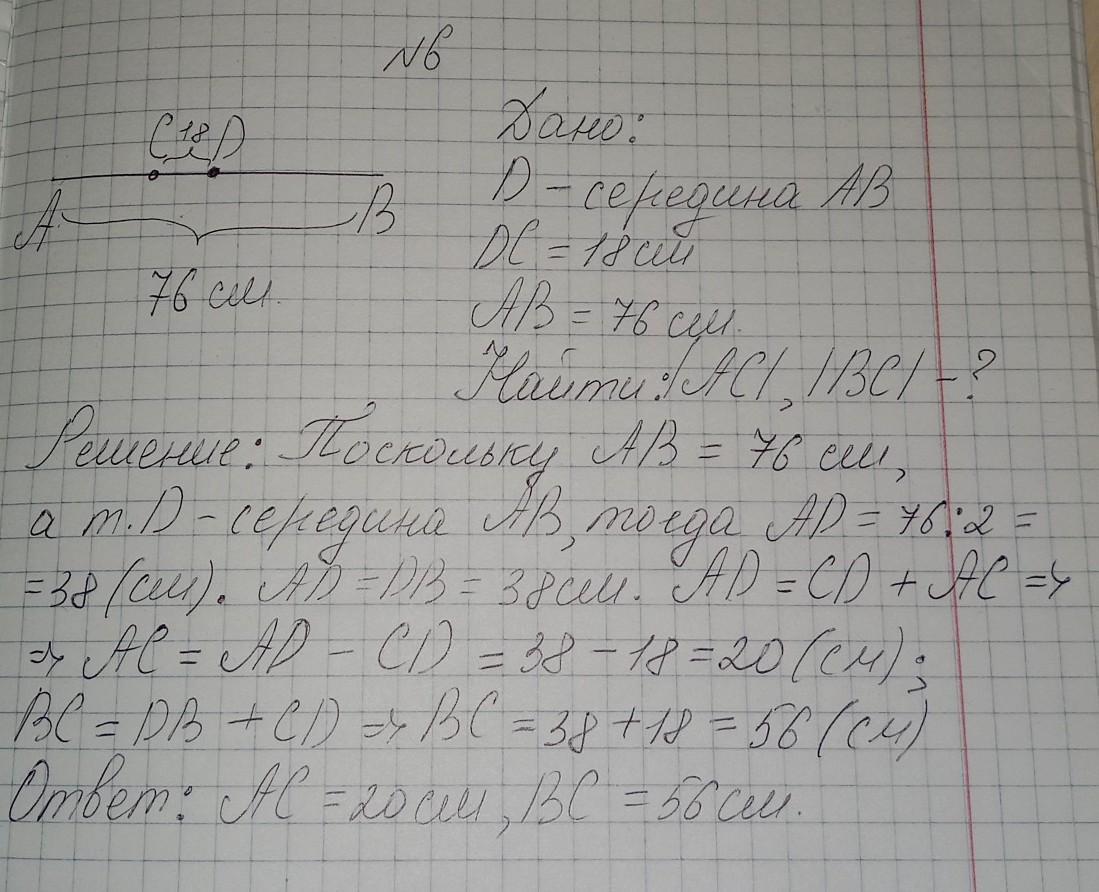 №6
C 18 D
A B
76 см.
Дано:
D - середина AB
DC = 18см
AB = 76 см.
Найти: |AC|, |BC| - ?
Решение: Поскольку AB = 76 см,
а т. D - середина AB, тогда AD = 76:2 =
=38 (см). AD = DB = 38см. AD = CD + AC =>
=> AC = AD - CD = 38 - 18 = 20 (см);
BC = DB + CD => BC = 38 + 18 = 56 (см)
Ответ: AC = 20см, BC = 56см.